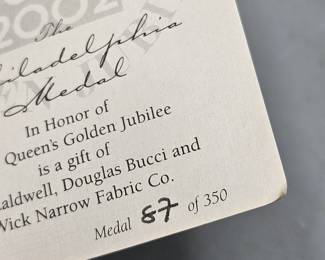 2002
The
iladelphia
Medal
In Honor of
Queen's Golden Jubilee
is a gift of
aldwell, Douglas Bucci and
Wick Narrow Fabric Co.
Medal 87 of 350